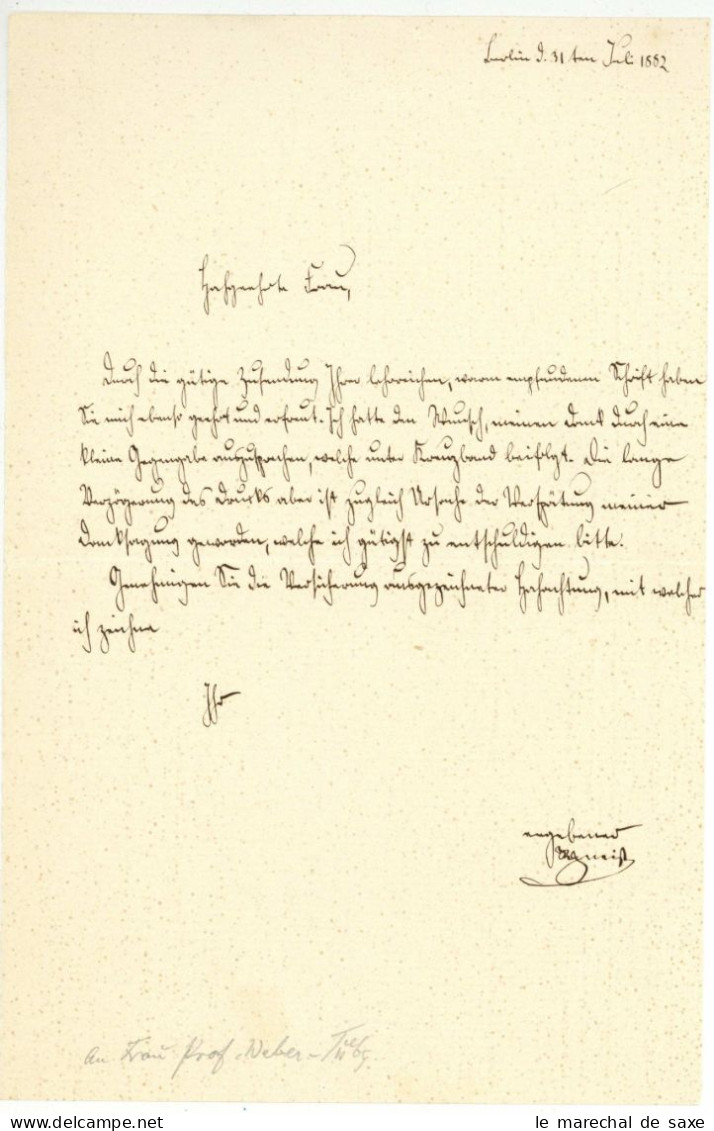 Berlin d. 31 ten Juli 1882
Hochgeehrte Frau,
Durch die gütige Zusendung Ihrer lehrreichen, warm empfundenen Schrift haben
Sie mich ebenso geehrt und erfreut. Ich hatte den Wunsch, meinen Dank durch eine
kleine Gegengabe auszusprechen, welche unter Kreuzband beifolgt. Die lange
Verzögerung des Drucks aber ist zugleich Ursache der Verspätung meiner
Danksagung geworden, welche ich gütigst zu entschuldigen bitte.
Genehmigen Sie die Versicherung ausgezeichneter Hochachtung, mit welcher
ich zeichne
Ihr
ergebener
Gneist
An Frau Prof. Weber -
le marechal de saxe